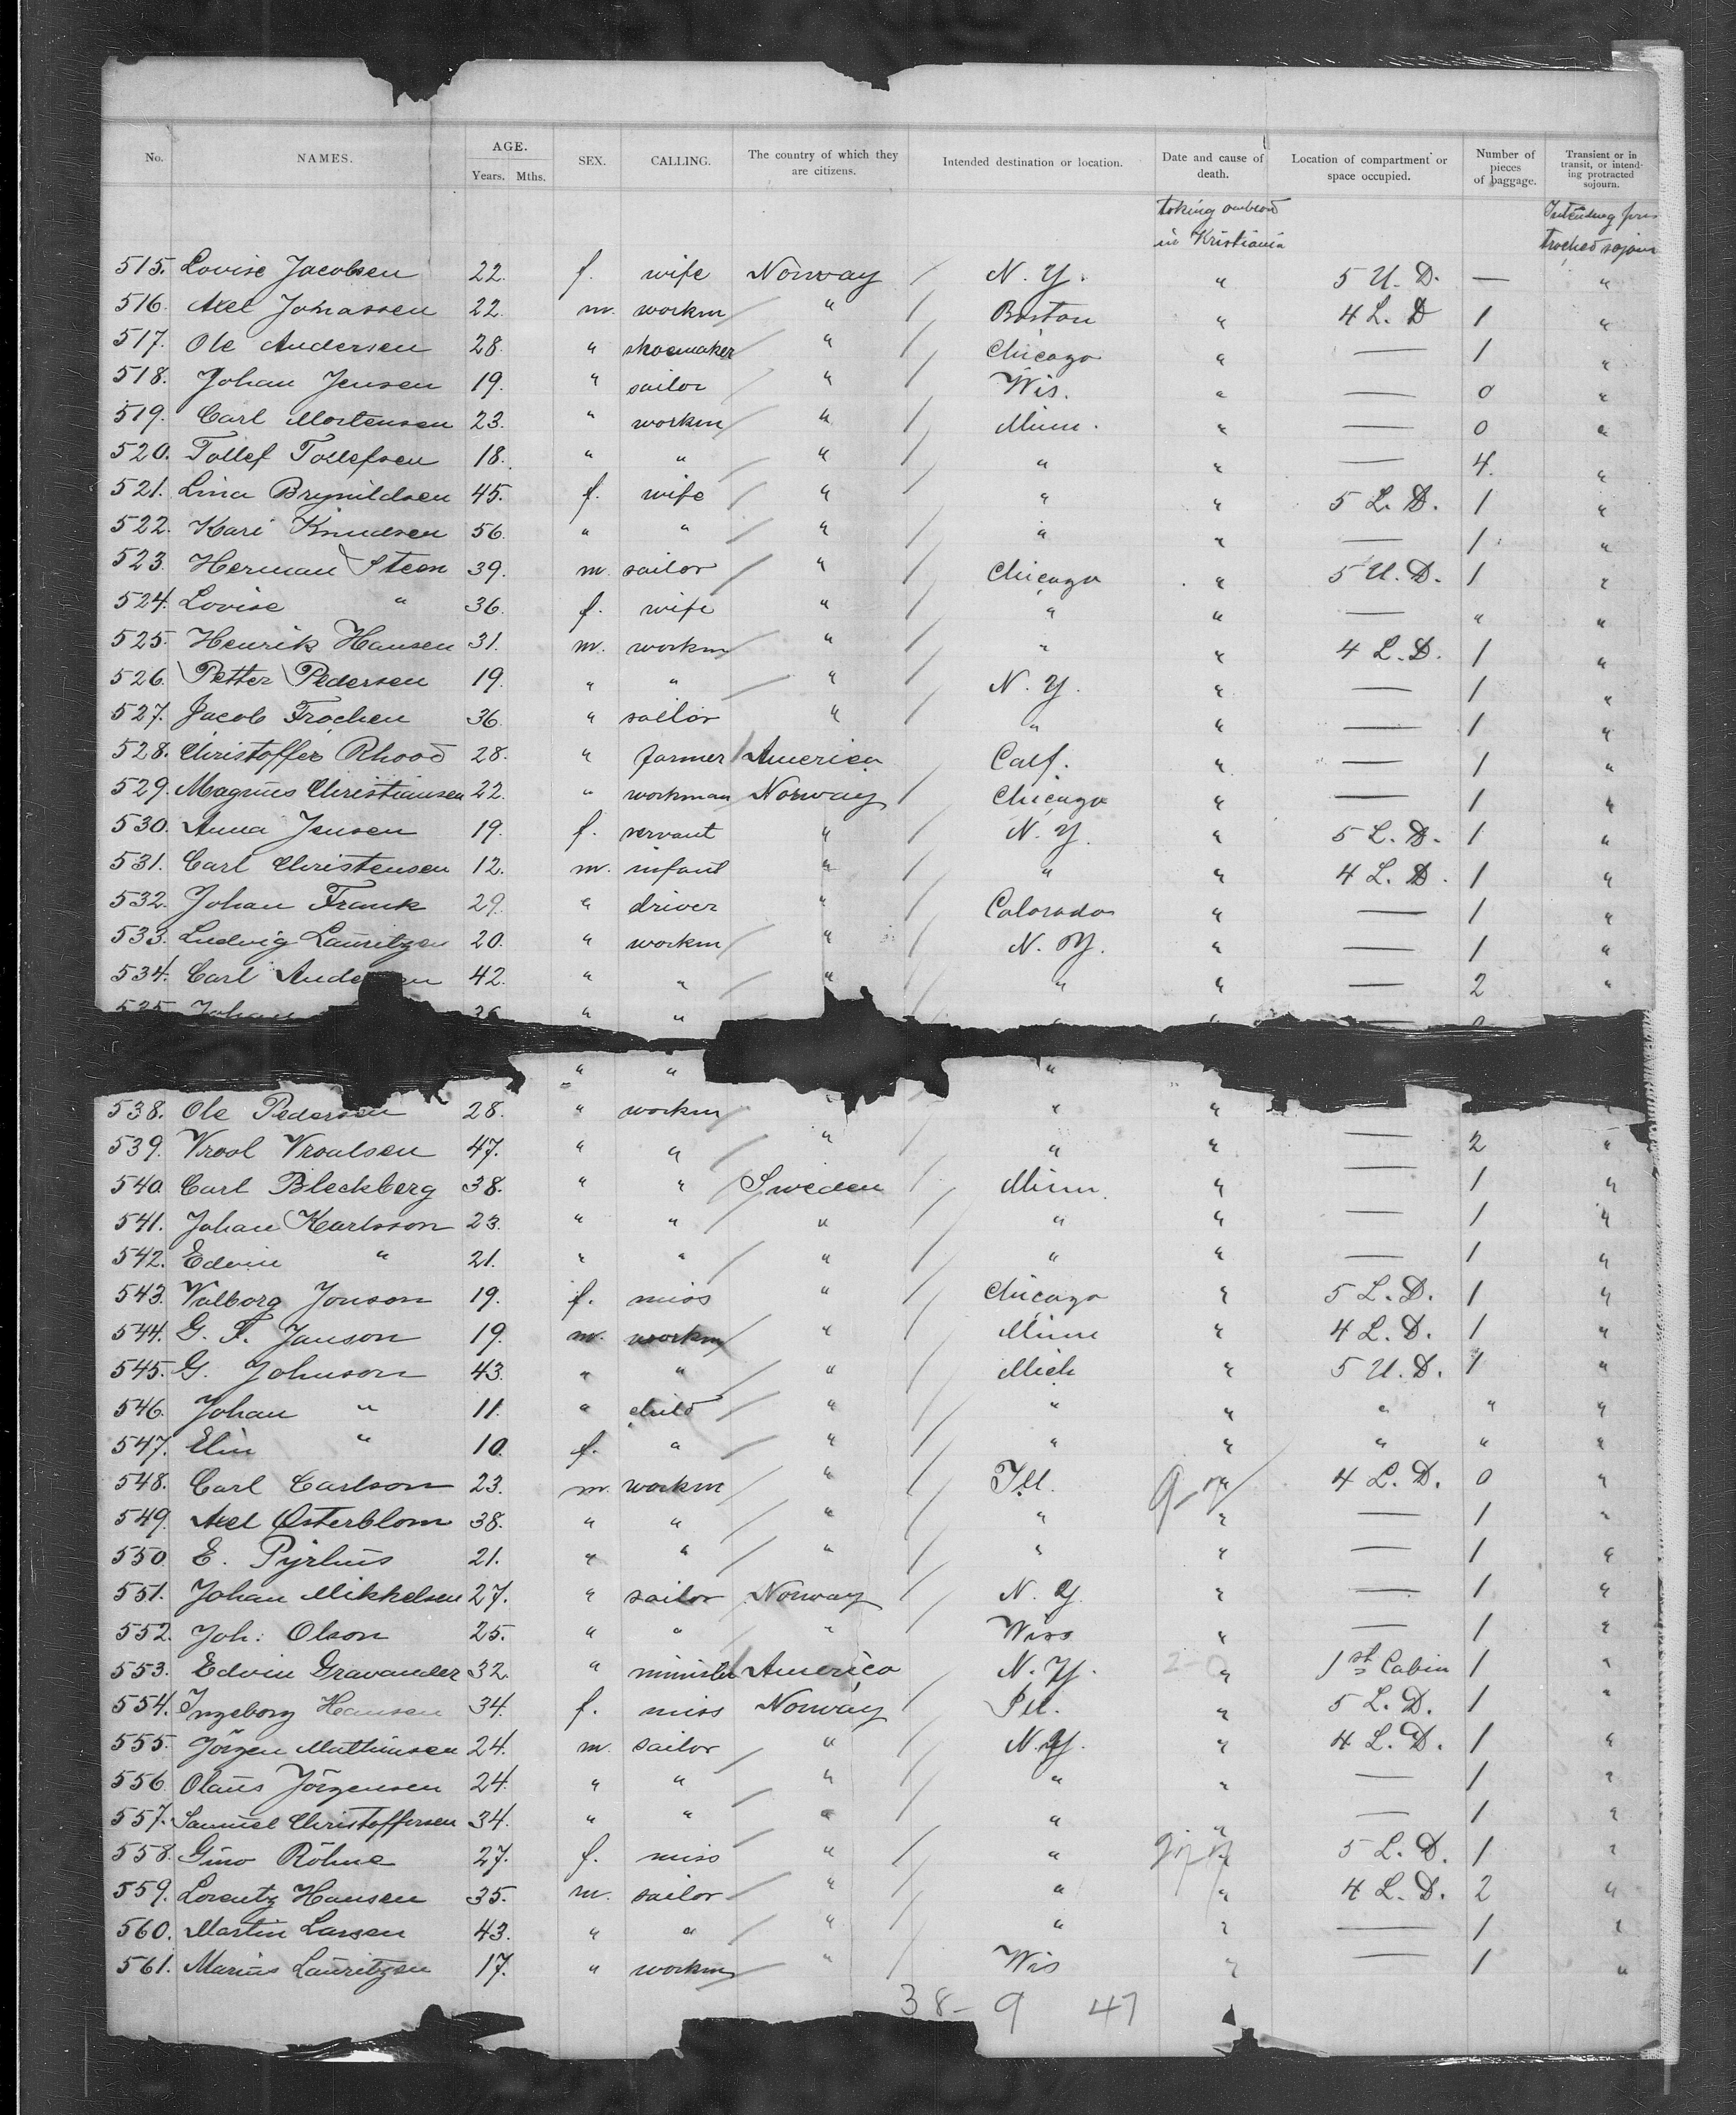 No. NAMES. AGE. Years. Mths. SEX. CALLING. The country of which they are citizens. Intended destination or location. Date and cause of death. Location of compartment or space occupied. Number of pieces of baggage. Transient or in transit, or intending protracted sojourn.
taking onboard in Kristiania Intending protracted sojour
515. Lovise Jacobsen 22. f. wife Norway / N. Y. " 5 U. D. — "
516. Axel Johnassen 22. m. workm " / Boston " 4 L. D 1 "
517. Ole Andersen 28. " shoemaker " / Chicago " — 1 "
518. Johan Jensen 19. " sailor " / Wis. " — 0 "
519. Carl Mortensen 23. " workm " / Minn. " — 0 "
520. Tollef Tollefsen 18. " " " / " " — 4. "
521. Lina Brynildsen 45. f. wife " / " " 5 L. D. 1 "
522. Kari Knudsen 56. " " " / " " — 1. "
523. Herman Steen 39. m. sailor " / Chicago " 5 U. D. 1 "
524. Lovise " 36. f. wife " / " " — " "
525. Henrik Hansen 31. m. workm " / " " 4 L. D. 1 "
526. Petter Pedersen 19. " " " / N. Y. " — 1 "
527. Jacob Trochen 36. " sailor " / " " — 1 "
528. Christoffer Rhood 28. " farmer America / Calf. " — 1 "
529. Magnus Christiansen 22. " workman Norway / Chicago " — 1 "
530. Anna Jensen 19. f. servant " / N. Y. " 5 L. D. 1 "
531. Carl Christensen 12. m. infant " / " " 4 L. D. 1 "
532. Johan Frank 29. " driver " / Colorado " — 1 "
533. Ludvig Lauritzen 20. " workm " / N. Y. " — 1 "
534. Carl Andersen 42. " " " / " " — 2 "
535. Johan 36. " "
" " "
538. Ole Pedersen 28. " workm " " "
539. Vrool Vroolsen 47. " " " / " " — 2 "
540. Carl Bleckberg 38. " " Sweden / Minn. " — 1 "
541. Johan Karlsson 23. " " " / " " — 1 "
542. Edvin " 21. " " " / " " — 1 "
543. Valborg Jonson 19. f. miss " / Chicago " 5 L. D. 1 "
544. G. F. Janson 19. m. workm " / Minn " 4 L. D. 1 "
545. G. Johnson 43. " " " / Mich " 5 U. D. 1 "
546. Johan " 11. " child " / " " " " "
547. Elin " 10. f. " " / " " " " "
548. Carl Carlson 23. m. workm " / Ill. " 4 L. D. 0 "
549. Axel Østerblom 38. " " " / " " — 1 "
550. E. Pyrhus 21. " " " / " " — 1 "
551. Johan Mikkelsen 27. " sailor Norway / N. Y. " — 1 "
552. Joh: Olson 25. " " " / Wiss " — 1 "
553. Edvin Gravander 32. " minister America / N. Y. " 1st Cabin 1 "
554. Ingeborg Hansen 34. f. miss Norway / Ill. " 5 L. D. 1 "
555. Jörgen Mathiusen 24. m. sailor " / N. Y. " 4 L. D. 1 "
556. Olaus Jörgensen 24. " " " / " " — 1 "
557. Samuel Christoffersen 34. " " " / " " — 1 "
558. Gino Röhne 27. f. miss " / " " 5 L. D. 1 "
559. Lorentz Hansen 35. m. sailor " / " " 4 L. D. 2 "
560. Martin Larsen 43. " " " / " " — 1 "
561. Marius Lauritzen 17. " workm " / Wis " — 1 "
38- 9 47